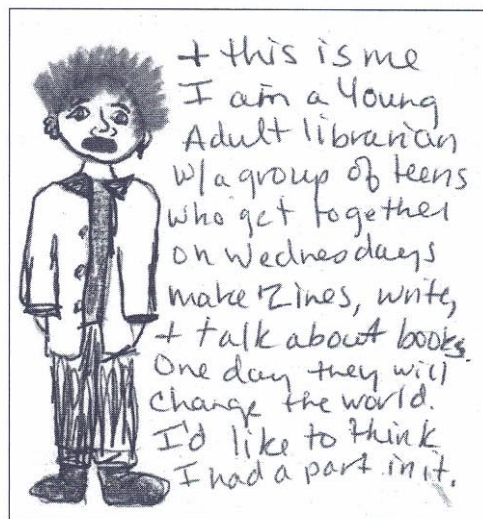 + this is me
I am a Young
Adult librarian
w/a group of teens
who get together
on Wednesdays
make Zines, write,
+ talk about books.
One day they will
change the world.
I'd like to think
I had a part in it.